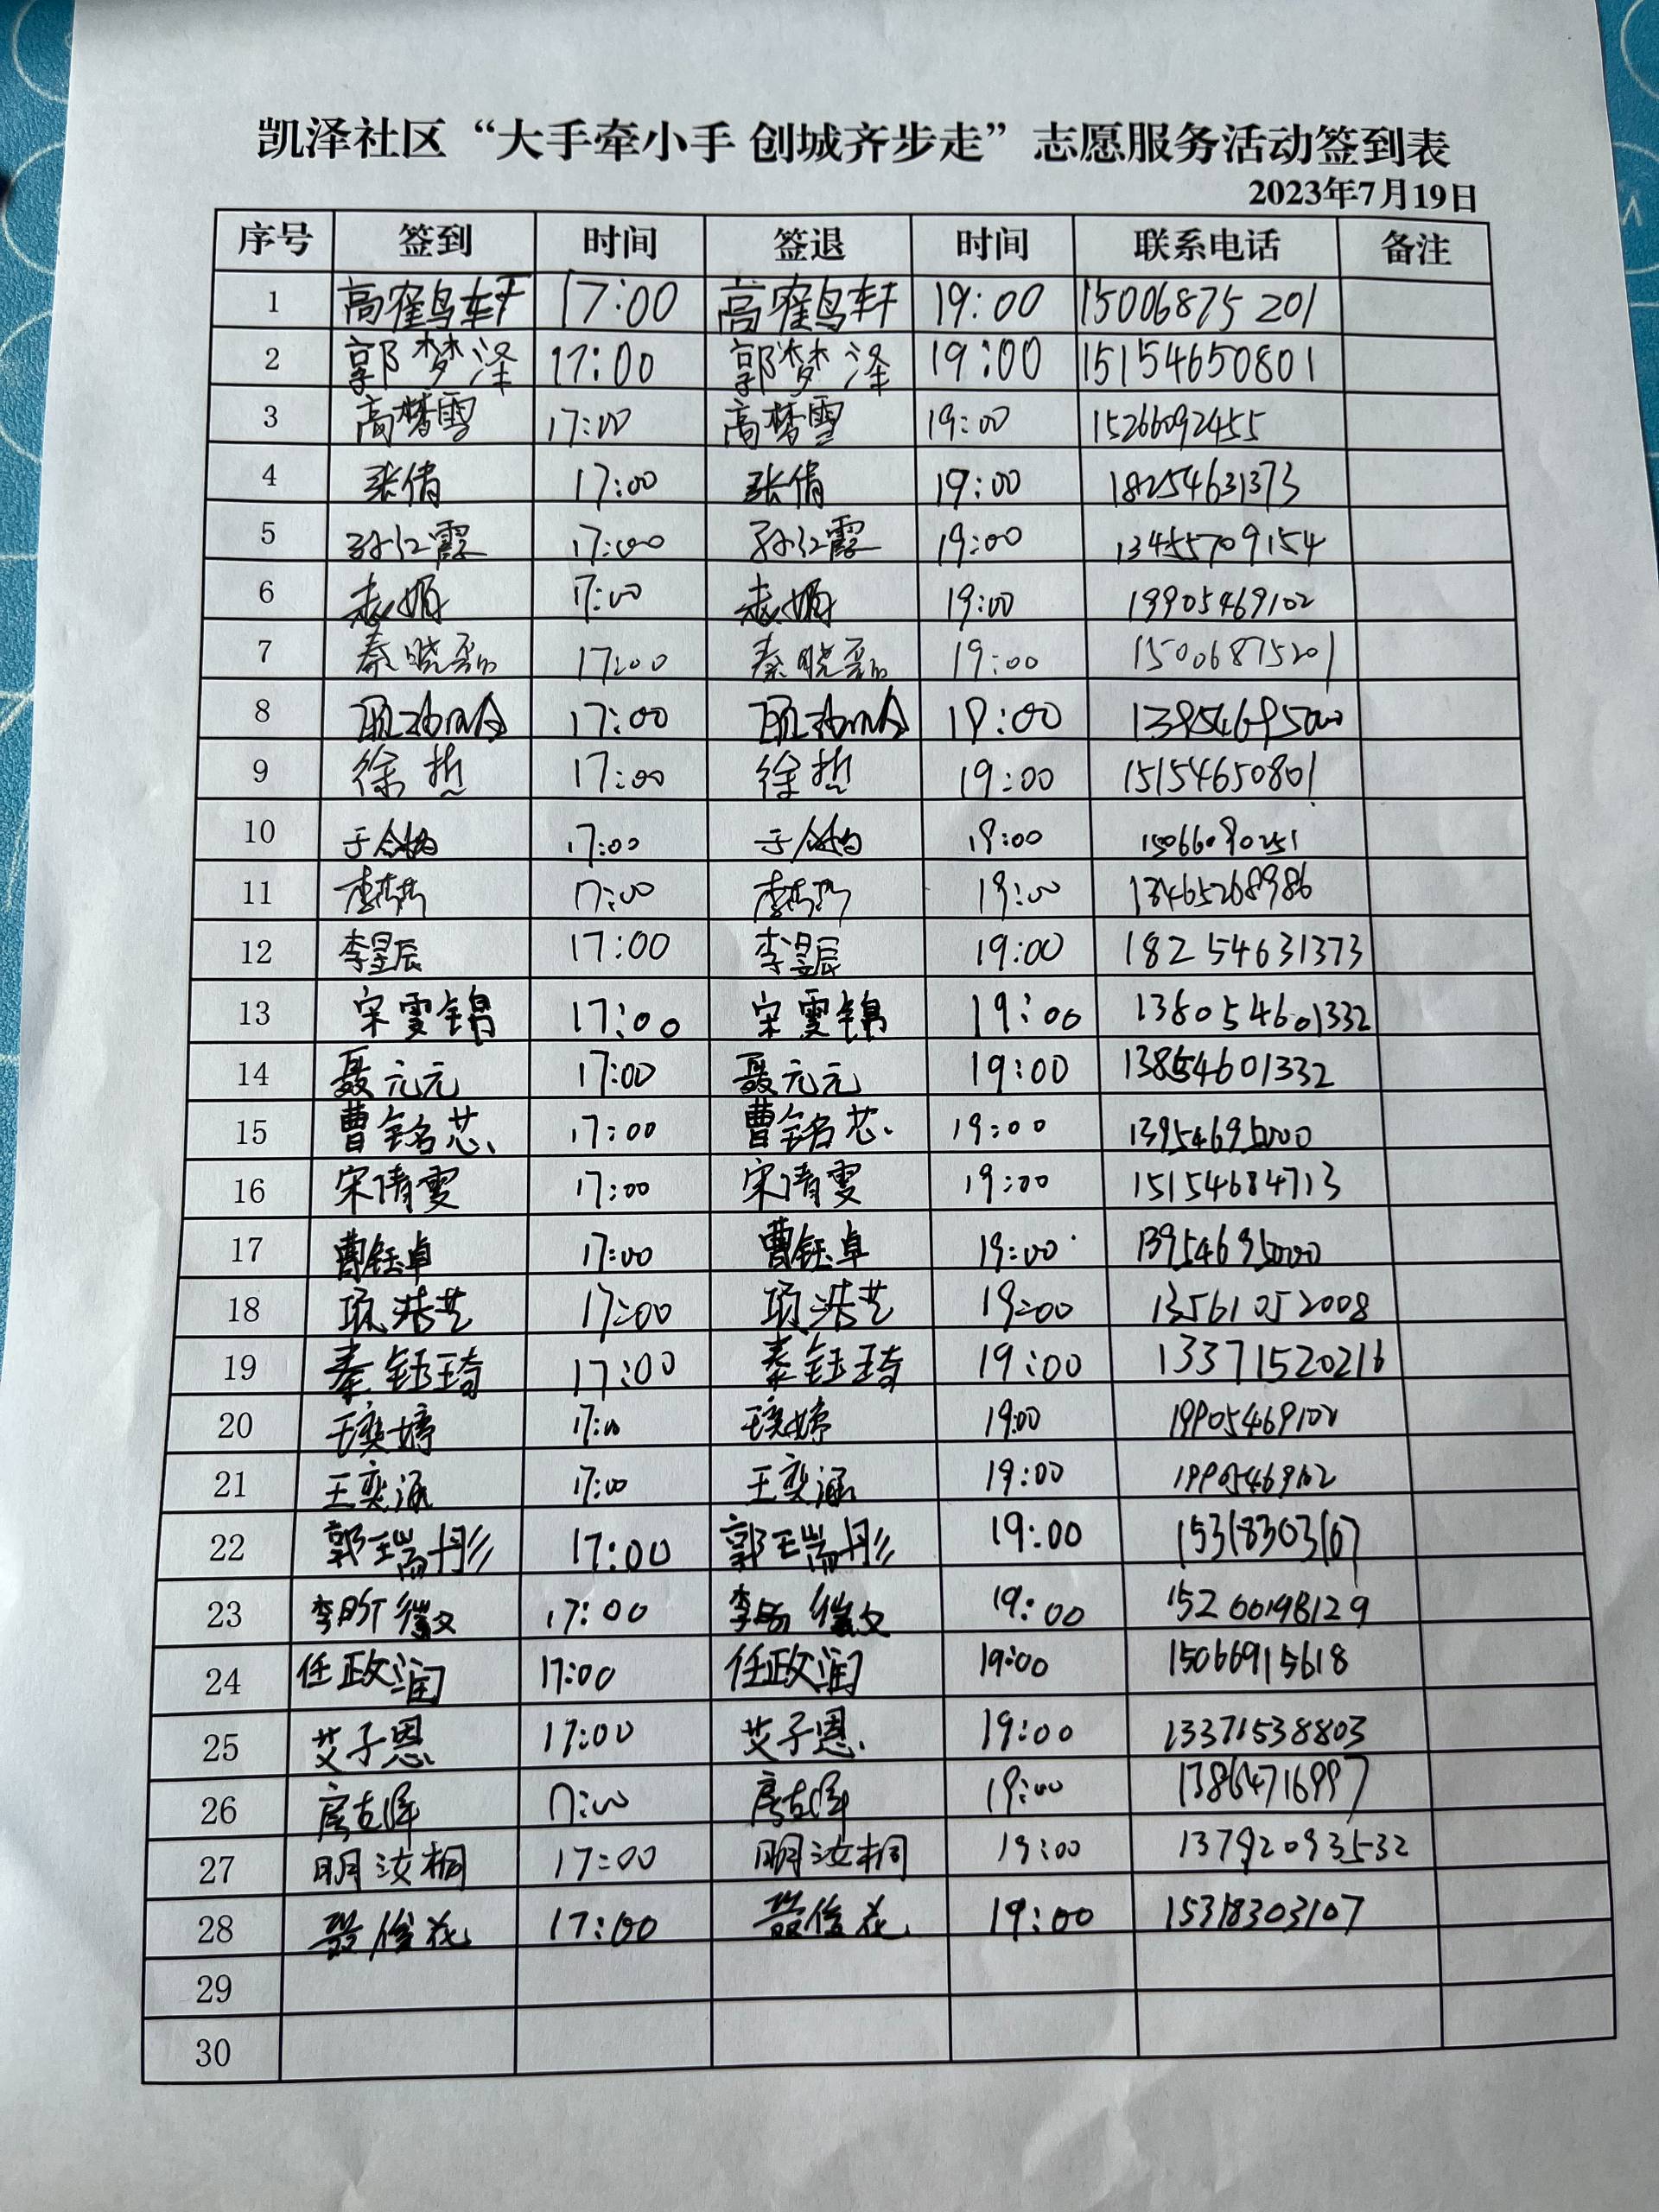 凯泽社区“大手牵小手 创城齐步走”志愿服务活动签到表
2023年7月19日
序号 签到 时间 签退 时间 联系电话 备注
1 高鹤轩 17:00 高鹤轩 19:00 15006875201
2 郭梦泽 17:00 郭梦泽 19:00 15154650801
3 高梦雪 17:00 高梦雪 19:00 15266092455
4 张倩 17:00 张倩 19:00 18254631373
5 孙红霞 17:00 孙红霞 19:00 13455709154
6 17:00 19:00 19905469102
7 秦晓磊 17:00 秦晓磊 19:00 15006875201
8 17:00 19:00 13954695000
9 徐哲 17:00 徐哲 19:00 15154650801
10 17:00 19:00 15066090251
11 17:00 19:00 13465268986
12 李昱辰 17:00 李昱辰 19:00 18254631373
13 宋雯锦 17:00 宋雯锦 19:00 138054601332
14 聂元元 17:00 聂元元 19:00 13854601332
15 曹铭芯 17:00 曹铭芯 19:00 13954695000
16 宋倩雯 17:00 宋倩雯 19:00 15154684713
17 曹钰卓 17:00 曹钰卓 19:00 13954695000
18 项浩艺 17:00 项浩艺 19:00 13561052008
19 秦钰琦 17:00 秦钰琦 19:00 13371520216
20 王奕婷 17:00 王奕婷 19:00 19905469102
21 王奕涵 17:00 王奕涵 19:00 19905469102
22 郭瑞彤 17:00 郭瑞彤 19:00 15318303107
23 17:00 19:00 15266098129
24 任政润 17:00 任政润 19:00 15066915618
25 艾子恩 17:00 艾子恩 19:00 13371538803
26 17:00 19:00 13864716997
27 明汝桐 17:00 明汝桐 19:00 13792093532
28 17:00 19:00 15318303107
29
30